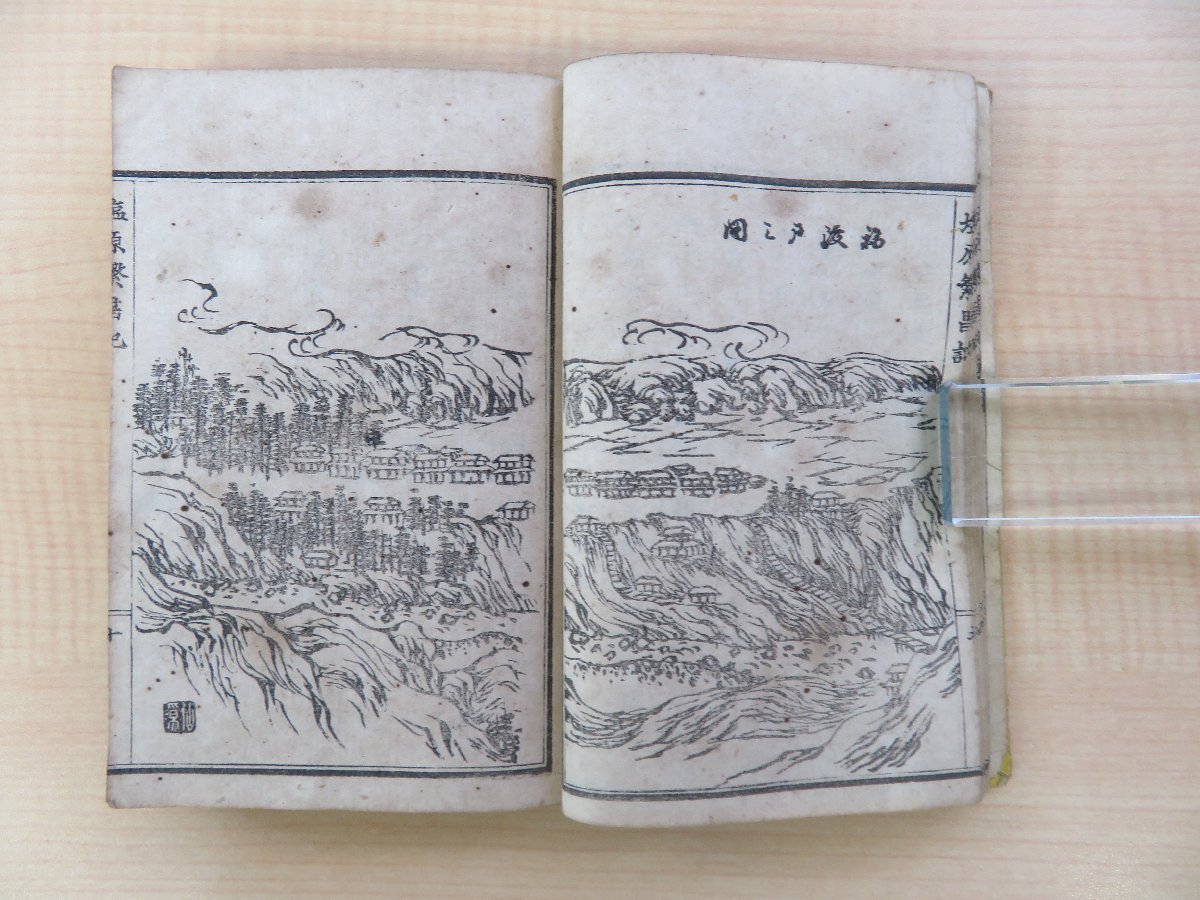 福渡戸之圖
塩原繁昌記
塩原繁昌記